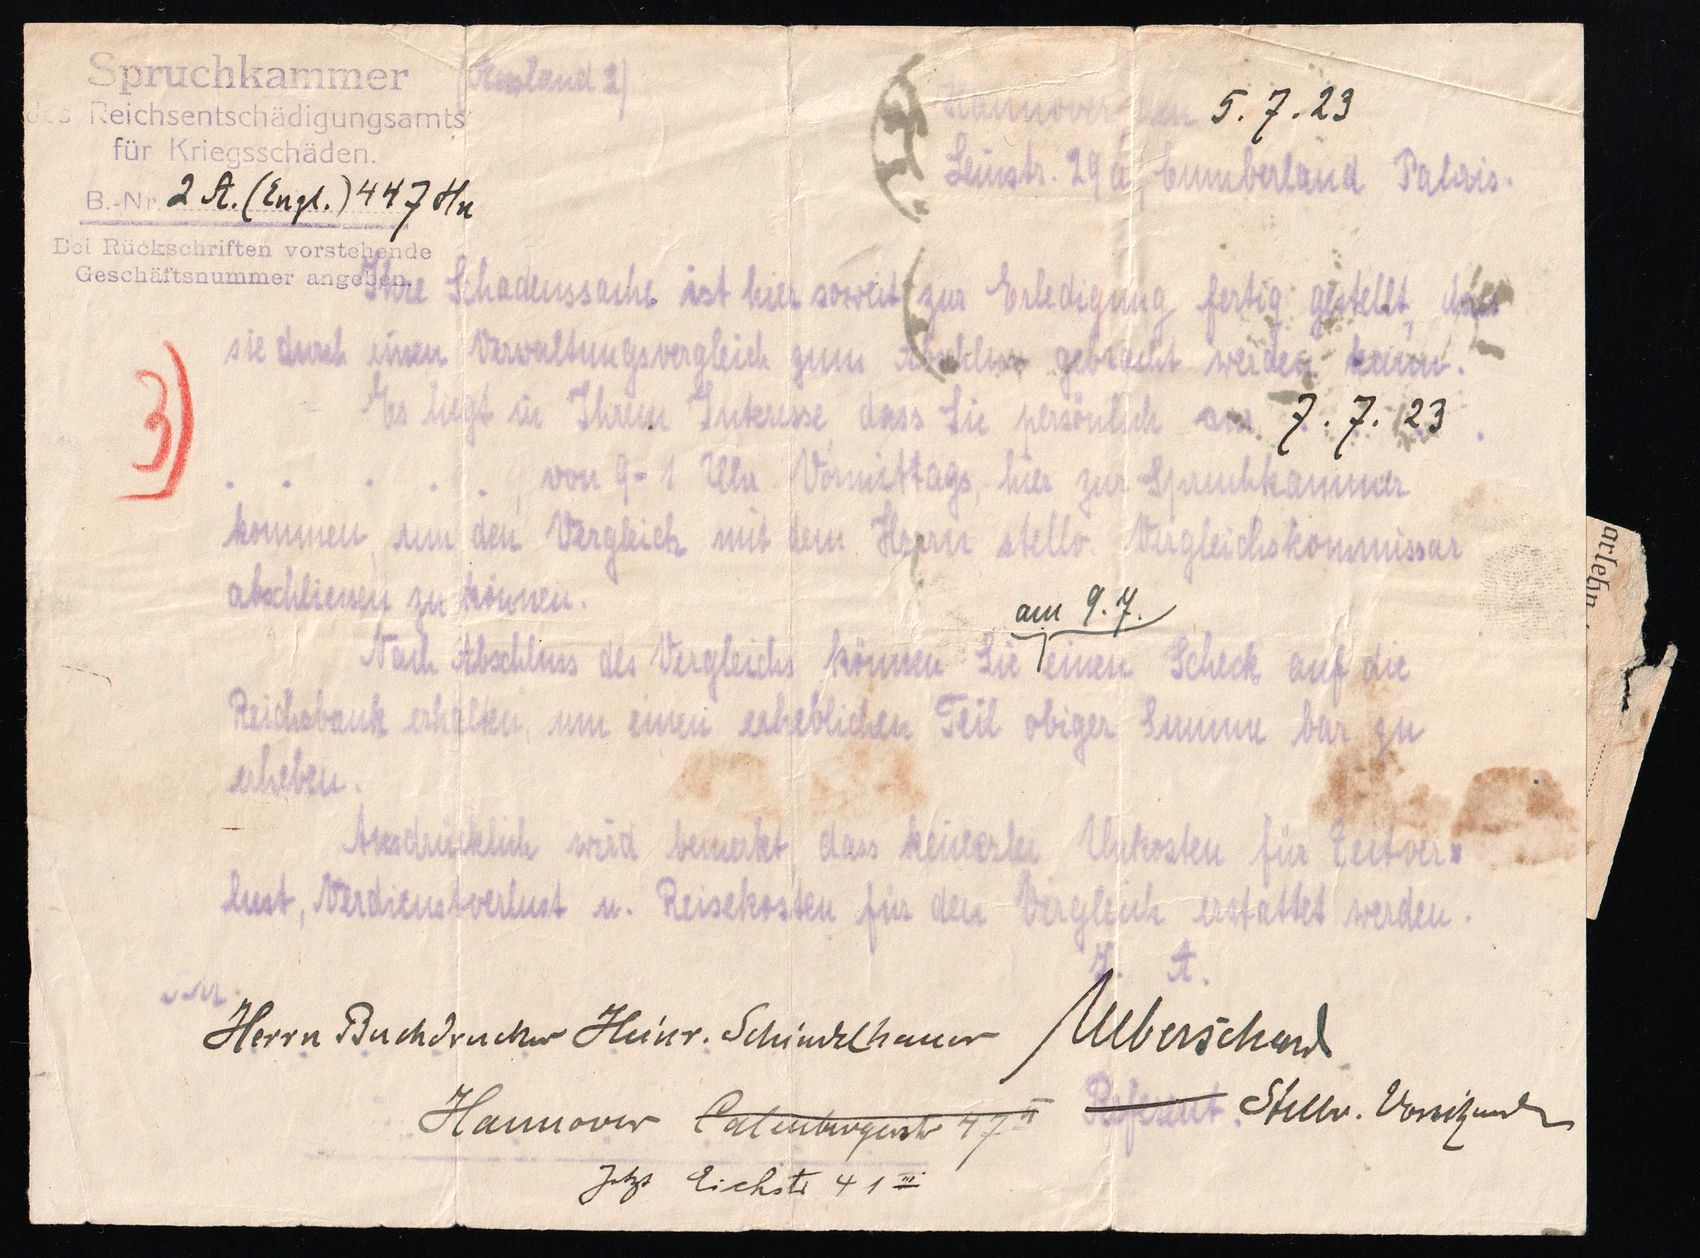 Spruchkammer
des Reichsentschädigungsamts
für Kriegsschäden.
B.-Nr. 2 A. (Engl.) 447 Hn
Bei Rückschriften vorstehende
Geschäftsnummer angeben.
(Russland 2)
Hannover den 5.7.23
Leinstr. 29 a, Cumberland Palais.
Ihre Schadenssache ist hier soweit zur Erledigung fertig gestellt, dass
sie durch einen Verwaltungsvergleich zum Abschluss gebracht werden kann.
3)
Es liegt in Ihrem Interesse, dass Sie persönlich am 7.7.23 .
. . . . . , von 9-1 Uhr Vormittags, hier zur Spruchkammer
kommen, um den Vergleich mit dem Herrn stellv. Vergleichskommissar
abschliessen zu können.
am 9.7.
Nach Abschluss des Vergleichs können Sie einen Scheck auf die
Reichsbank erhalten, um einen erheblichen Teil obiger Summe bar zu
erheben.
Ausdrücklich wird bemerkt, dass keinerlei Unkosten für Zeitver-
lust, Verdienstverlust u. Reisekosten für den Vergleich erstattet werden.
I. A.
Herrn Buchdrucker Heinr. Schindelhauer
Ueberschard
Hannover Calenbergerstr 47 II
Referent. Stellv. Vorsitzender
Jetzt Eichstr 41 III
arlehn